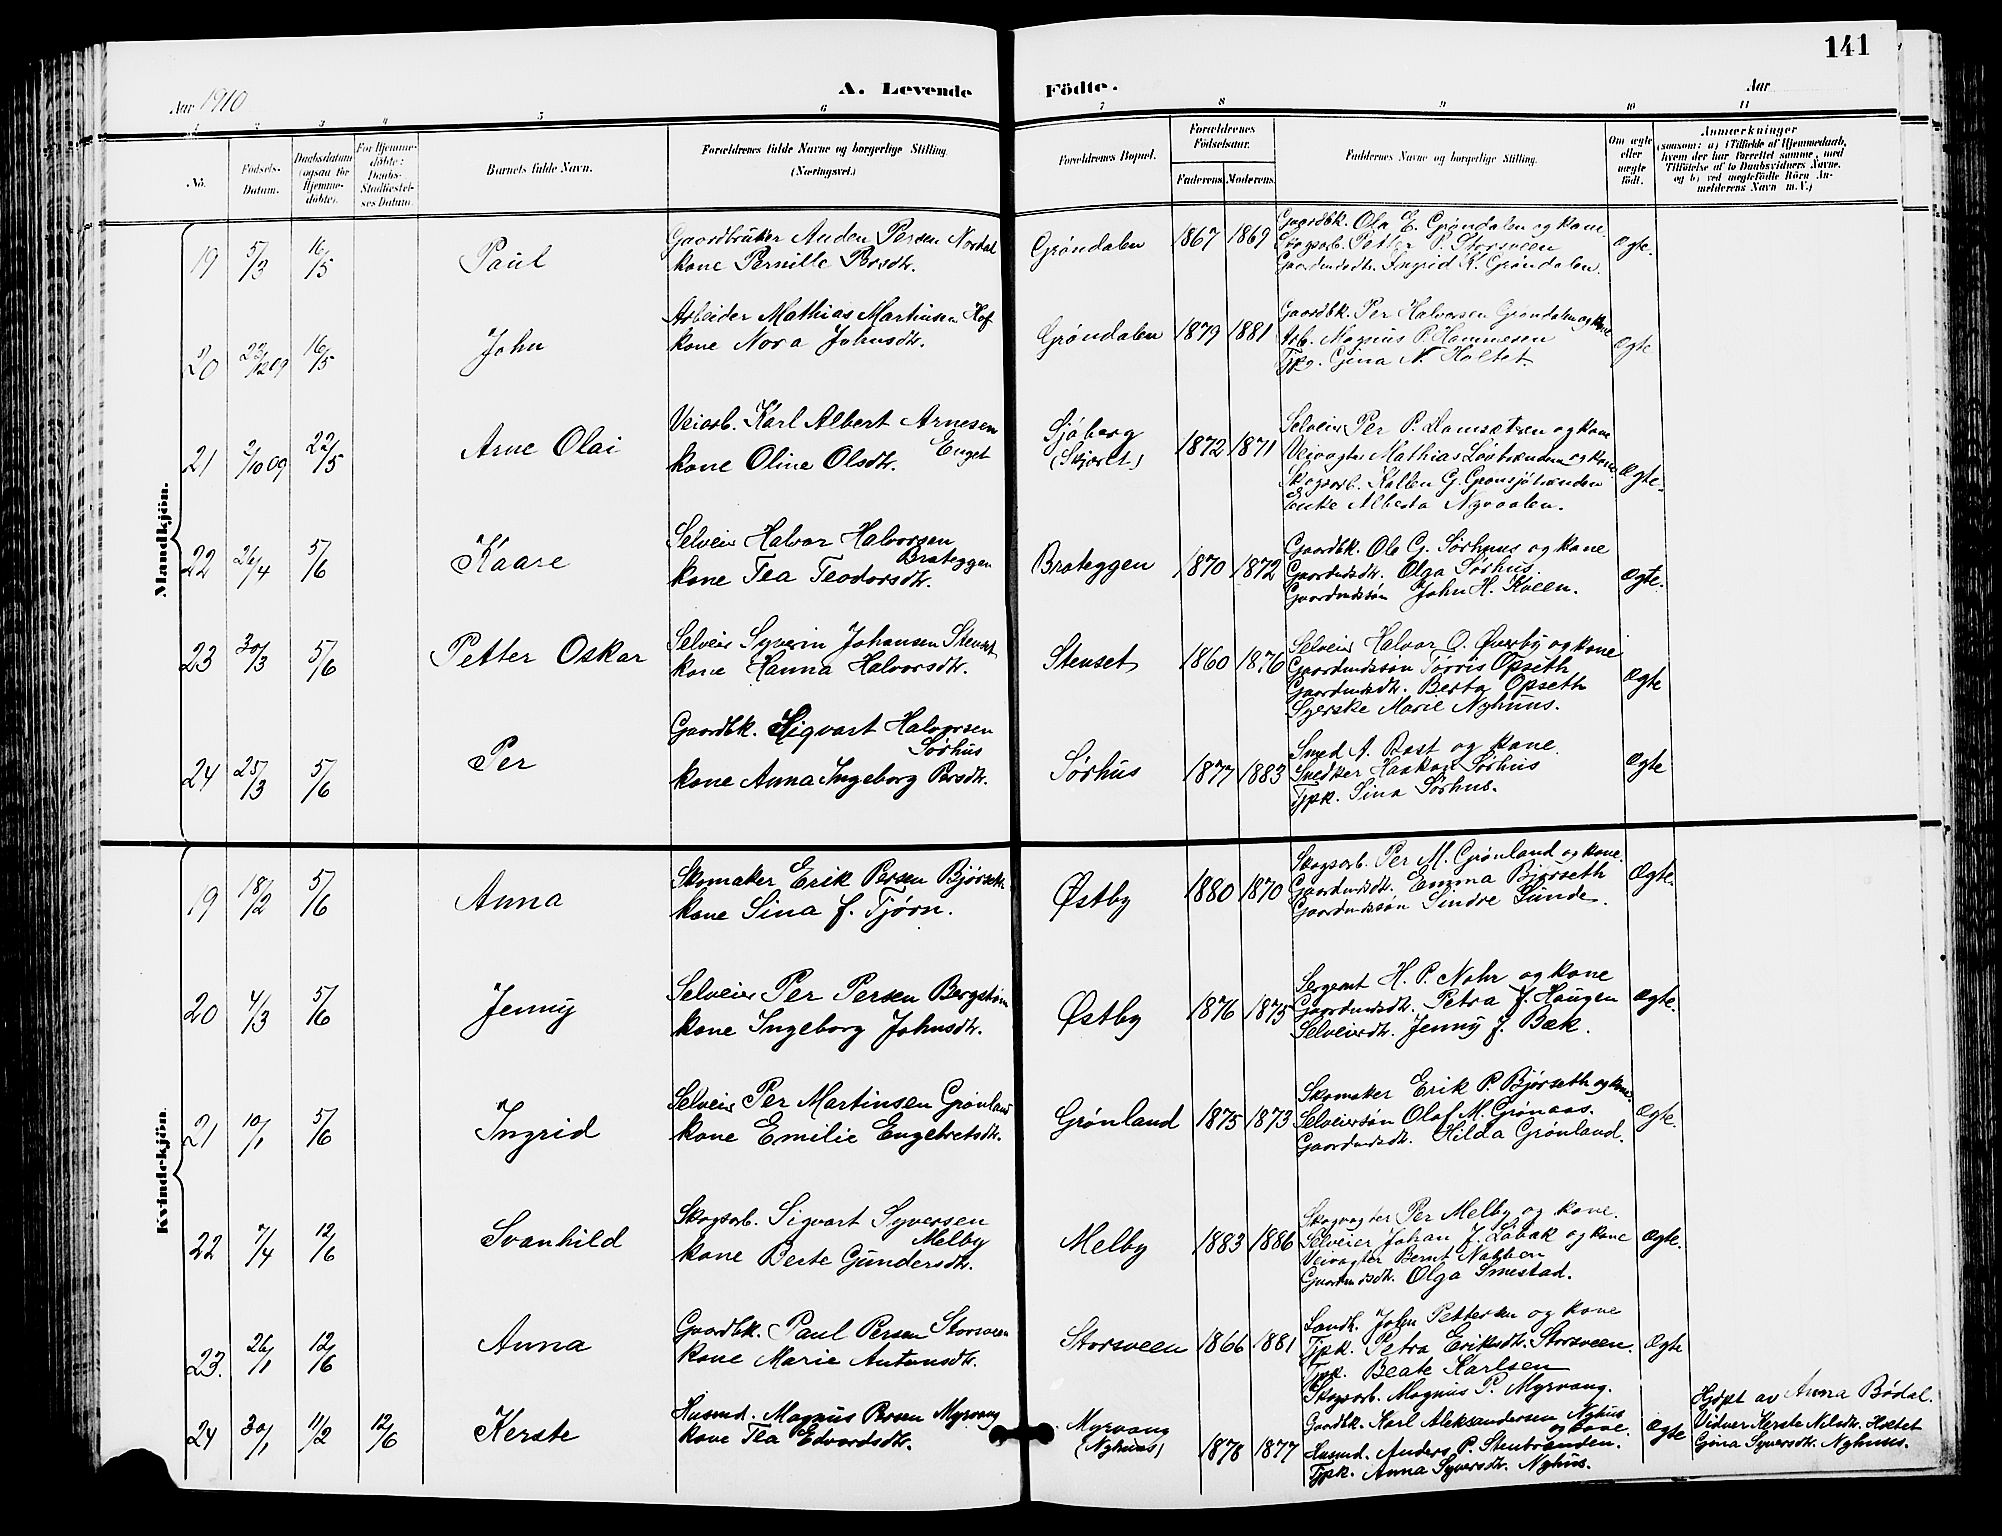 141
A. Levende Födte.
Aar 1910
Aar
1 2 3 4 5 6 7 8 9 10 11
No.
Födsels-Datum.
Daabsdatum (ogsaa for Hjemme-döbte).
For Hjemme-döbte: Daabs-Stadfæstel-ses Datum.
Barnets fulde Navn.
Forældrenes fulde Navne og borgerlige Stilling (Næringsvei.)
Forældrenes Bopæl.
Forældrenes Födselsaar.
Faderens.
Moderens.
Faddernes Navne og borgerlige Stilling.
Om ægte eller uægte födt.
Anmærkninger
(saasom: a) i Tilfælde af Hjemmedaab,
hvem der har forrettet samme, med
Tilföielse af to Daabsvidners Navne.
og b) ved uægtefödte Börn An-
melderens Navn m. V.)
Mandkjön.
19 5/3 16/5 Paul
Gaardbruker Auden Persen Nordal
kone Pernille Persdtr.
Grøndalen 1867 1869
Gaardbk. Ola E. Grøndalen og kone
Skogsarb. Petter P. Storsveen
Gaardmdsdtr. Ingrid K. Grøndalen.
ægte.
20 23/12 09 16/5 John
Arbeider Mathias Martinsen Hof
kone Nora Johnsdtr.
Grøndalen 1879 1881
Gaardbk. Per Halvorsen Grøndalen og kone
Arb. Magnus P. Hammeren
Tjp. Gina N. Holtet.
ægte
21 2/10 09 22/5 Arne Olai
Veiarb. Karl Albert Arnesen
Enget
kone Oline Olsdtr.
Sjøberg
(Skjæret)
1872 1871
Selveier Per P. Lomsætren og kone
Veivagter Mathias Løvbrænden og kone.
Skogsarb. Kallen G. Grønsjøbrænden
Enke Alberta Nyvoalen.
ægte.
22 26/4 5/6 Kaare
Selveier Halvor Halvorsen
Brateggen
kone Tea Teodorsdtr.
Brateggen 1870 1872
Gaardbk. Ole G. Sørhuus og kone
Gaardmdsdtr. Olga Sørhus.
Gaardmdssøn John H. Kveen.
ægte.
23 30/3 5/6 Petter Oskar
Selveier Syverin Johansen Stenset
kone Hanna Halvorsdtr.
Stenset 1860 1876
Selveier Halvor O. Øverby og kone
Gaardmdssøn Tørris Opseth
Gaardmdsdtr. Berta Opseth
Syerske Marie Nyhuus.
ægte
24 25/3 5/6 Per
Gaardbk. Sigvart Halvorsen
Sørhus
kone Anna Ingeborg Persdtr.
Sørhus 1877 1883
Smed A. Bast og kone.
Snedker Haakon Sørhus
Tjpk. Sina Sørhus.
ægte
Kvindekjön.
19 18/2 5/6 Anna
Skomaker Erik Persen Bjørseth
kone Sina J. Tjørn.
Østby 1880 1870
Skogsarb. Per M. Grønland og kone.
Gaardmdsdtr. Emma Bjørseth
Gaardmdssøn Sindre Sunde.
ægte.
20 4/3 5/6 Jenny
Selveier Per Persen Bergstrøm
kone Ingeborg Johnsdtr.
Østby 1876 1875
Sergeant H. P. Nohr og kone
Gaardmdsdtr. Petra J. Haugen
Selveierdtr. Jenny J. Bæk.
ægte.
21 10/1 5/6 Ingrid
Selveier Per Martinsen Grønland
kone Emilie Engebretsdtr.
Grønland 1875 1873
Skomaker Erik P. Bjørseth og kone
Selveiersøn Olaf M. Grønaas.
Gaardmdsdtr. Hilda Grønland.
ægte.
22 7/4 12/6 Svanhild
Skogsarb. Sigvart Syversen
Melby
kone Berte Gundersdtr.
Melby 1883 1886
Skogvagter Per Melby og kone.
Selveier Johan J. Løbak og kone
Veivagter Bernt Nabben
Gaardmdsdtr. Olga Smestad.
ægte.
23. 26/1 12/6 Anna
Gaardbk. Paul Persen Storsveen
kone Marie Antonsdtr.
Storsveen 1866 1881
Landh. John Pettersen og kone
Tjpk. Petra Eriksdtr. Storsveen.
Tjpk. Beate Karlsen
Skogsarb. Magnus P. Myrvang.
ægte
24 30/1 11/2 12/6 Kerste
Husmd. Magnus Persen Myrvang
kone Tea Edvardsdtr.
Myrvang
(Nyhuus)
1878 1877
Gaardbk. Karl Aleksandersen Nyhus
og kone.
Husmd. Anders P. Stenbrænden.
Tjpk. Anna Syversdtr. Nyhus.
ægte
Hjdpt av Anna Bødal.
Vidner Kerste Nilsdtr. Holtet
Gina Syversdtr. Nyhuus.